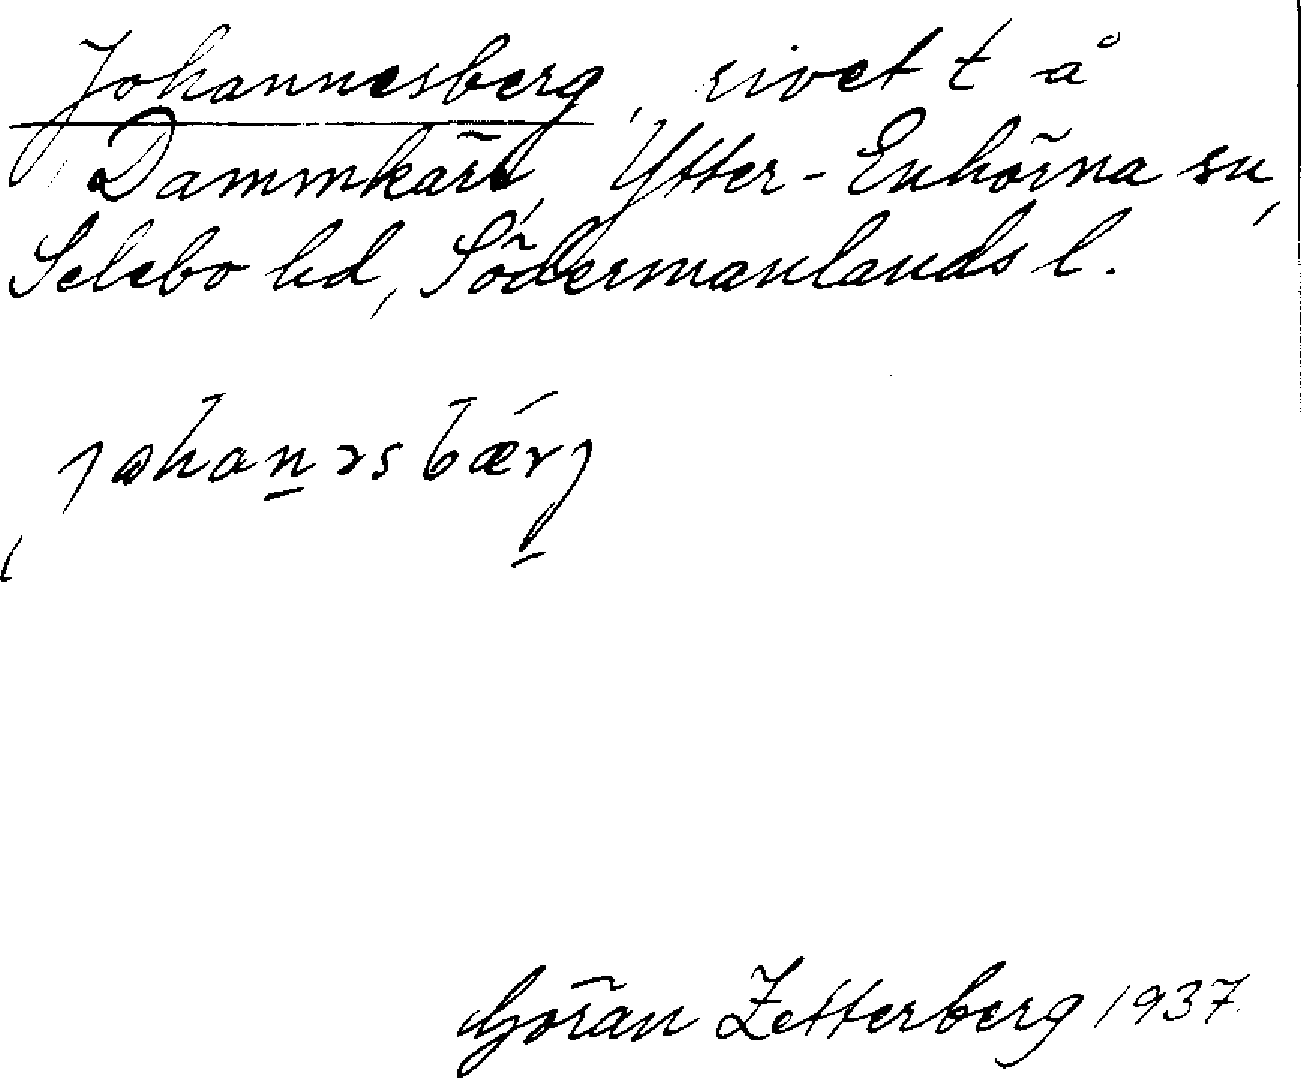 Johannesberg, rivet t å
Dammkärr, Ytter-Enhörna sn,
Selebo hd, Södermanlands l.
johanəsbærj
Göran Zetterberg 1937.